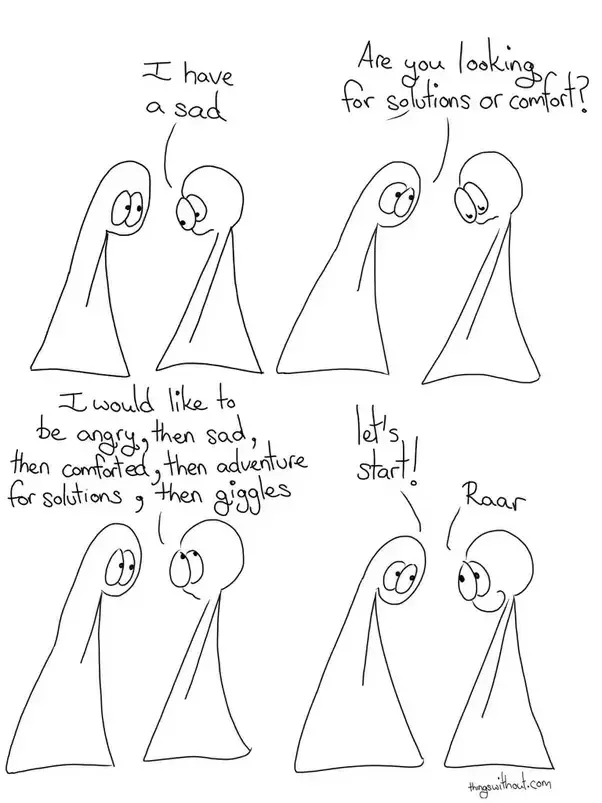 I have
a sad
Are you looking
for solutions or comfort?
I would like to
be angry, then sad,
then comforted, then adventure
for solutions, then giggles
let's
start!
Raar
thingswithout.com